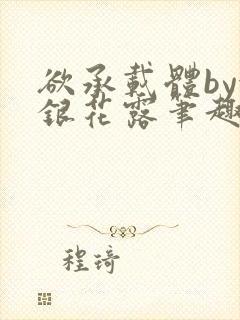 欲承載體by
銀花露筆趣
程琦